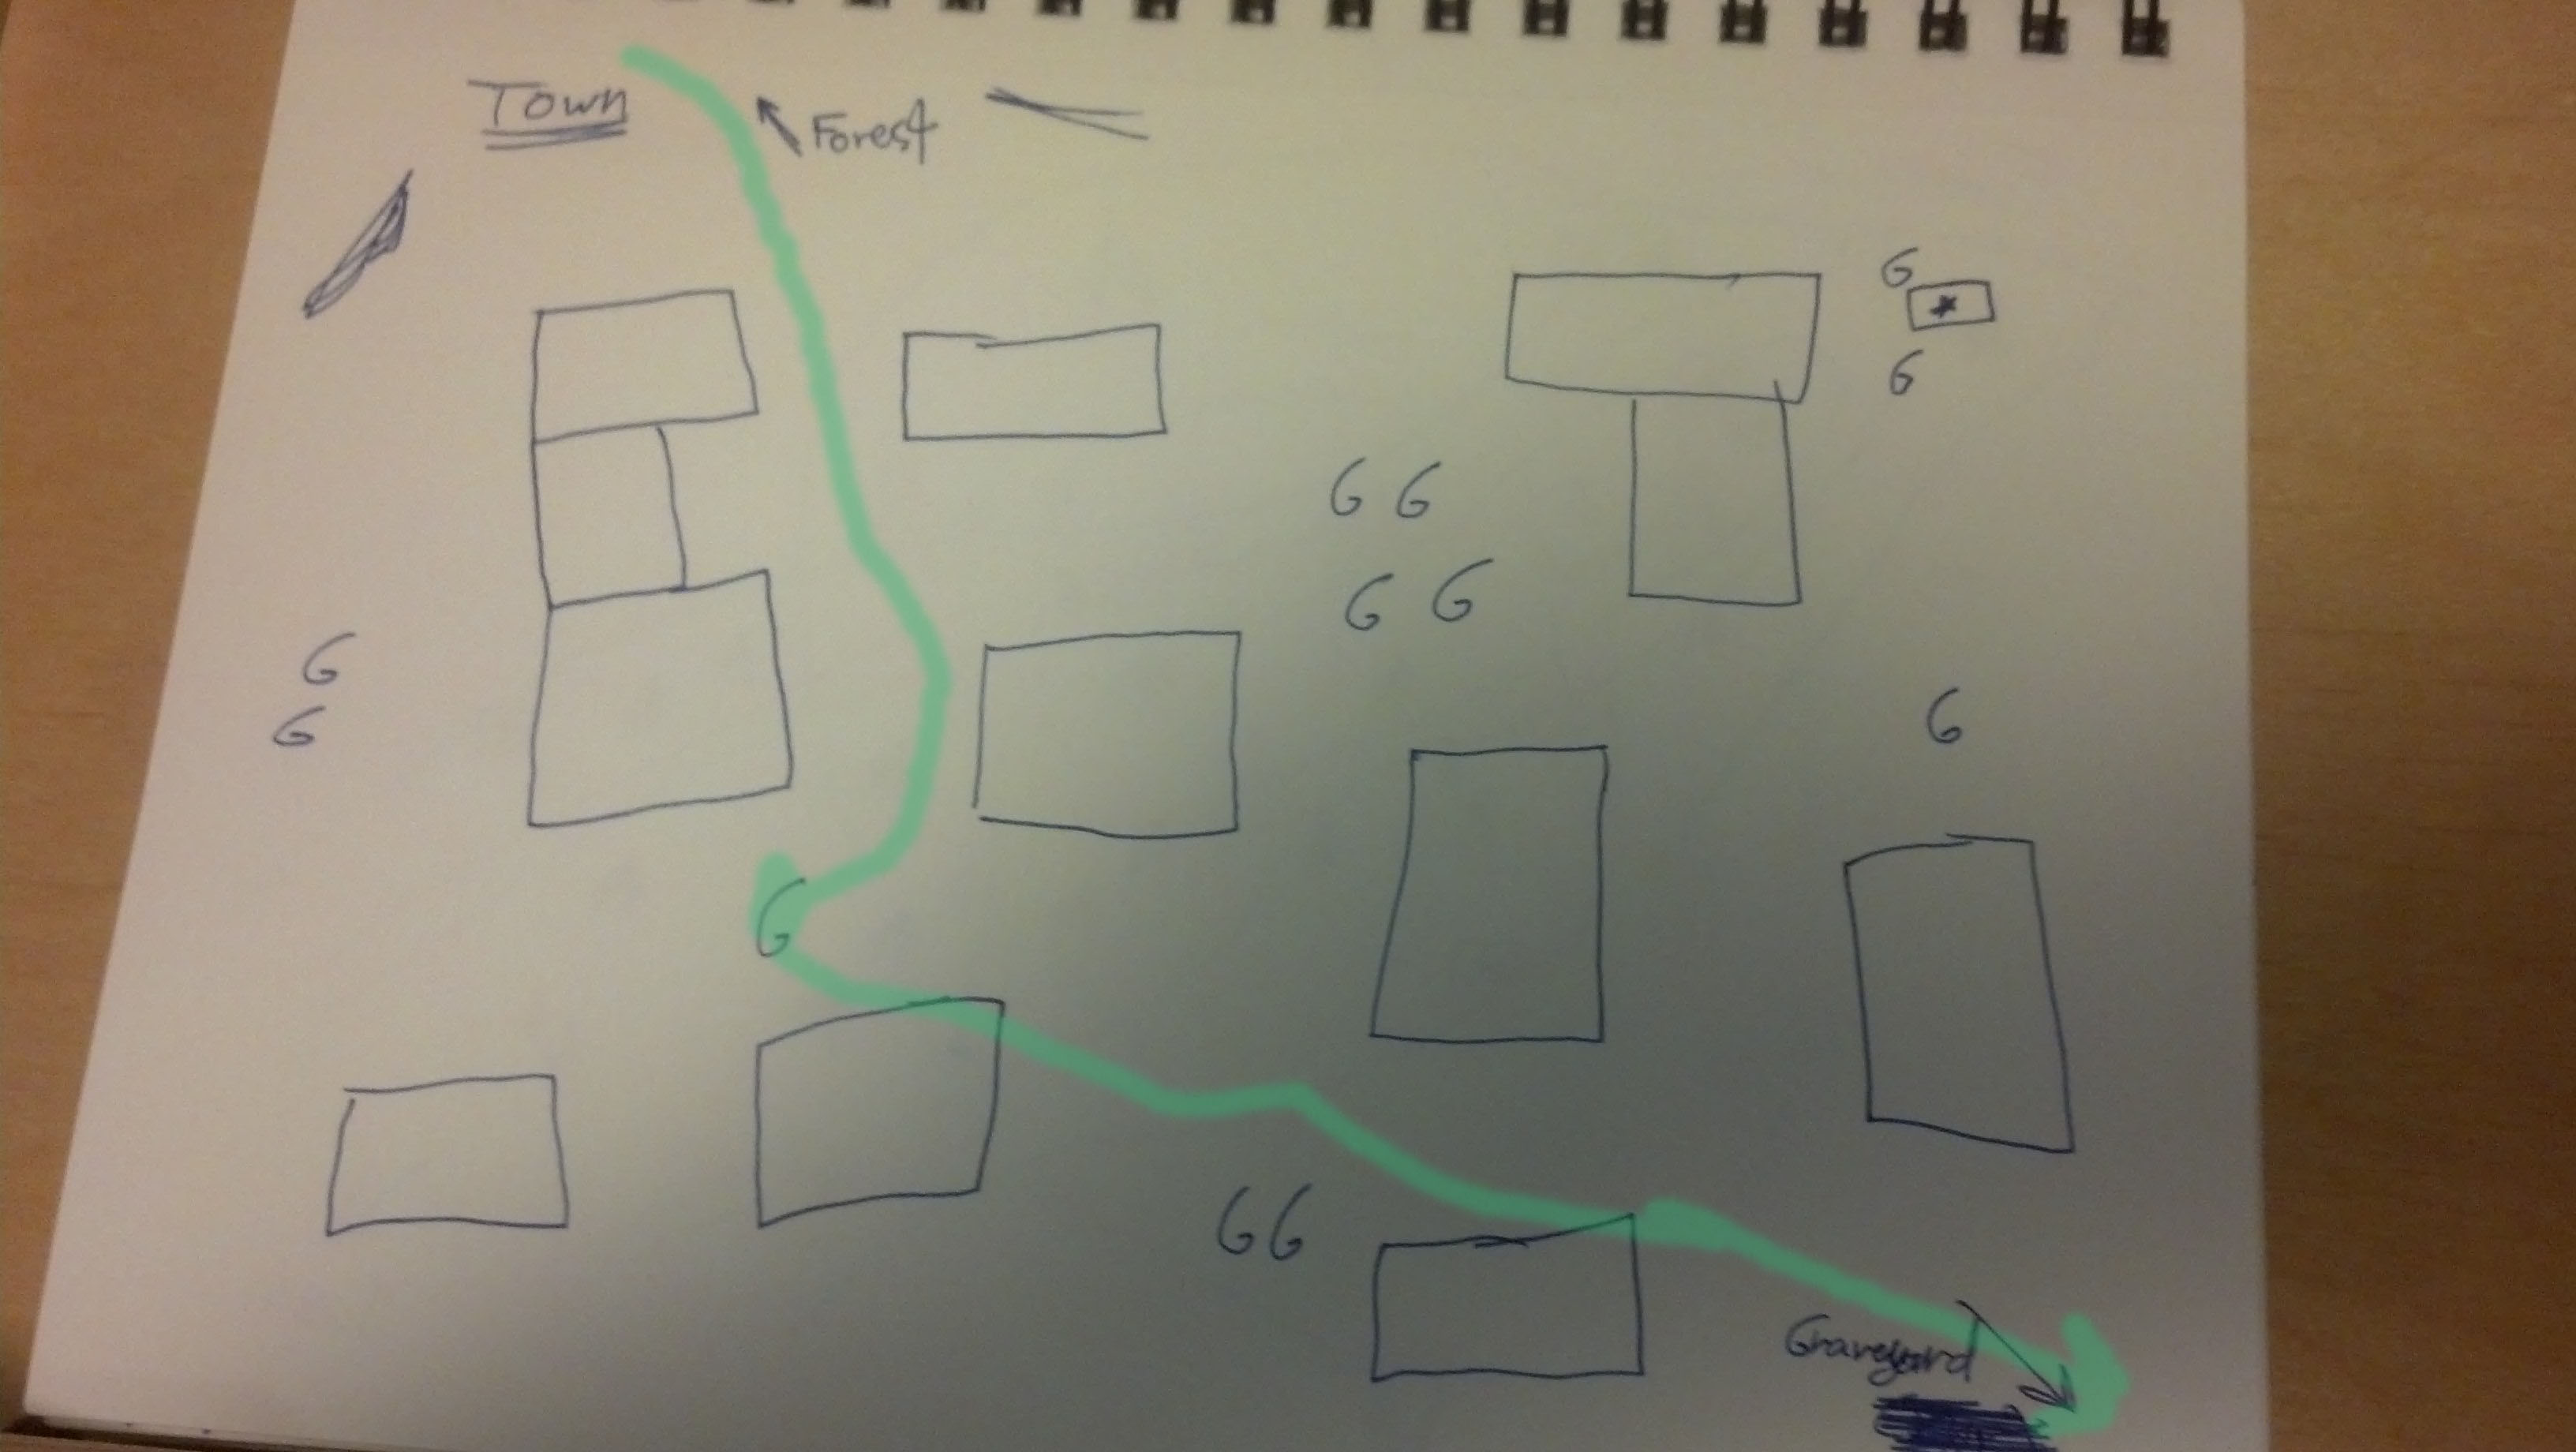 Town
Forest
G
G
G G
G G
G
G
G
G
G G
Graveyard